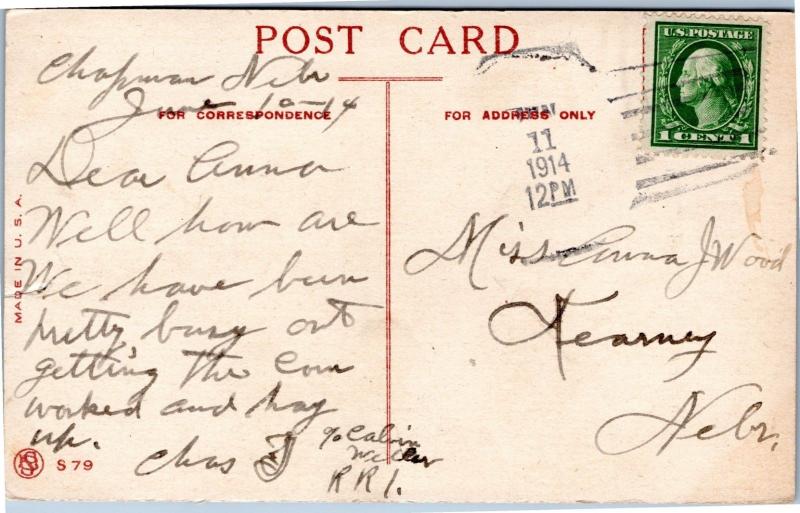 POST CARD
Chapman Nebr
June 10-14
FOR CORRESPONDENCE
Dear Anna
Well how are
We have been
pretty busy out
getting the Corn
worked and hay
up.
Chas J
% Calvin
RR1.
MADE IN U.S.A.
S 79
FOR ADDRESS ONLY
11
1914
12PM
U.S. POSTAGE
1 CENT 1
Miss Anna J Wood
Kearney
Nebr.